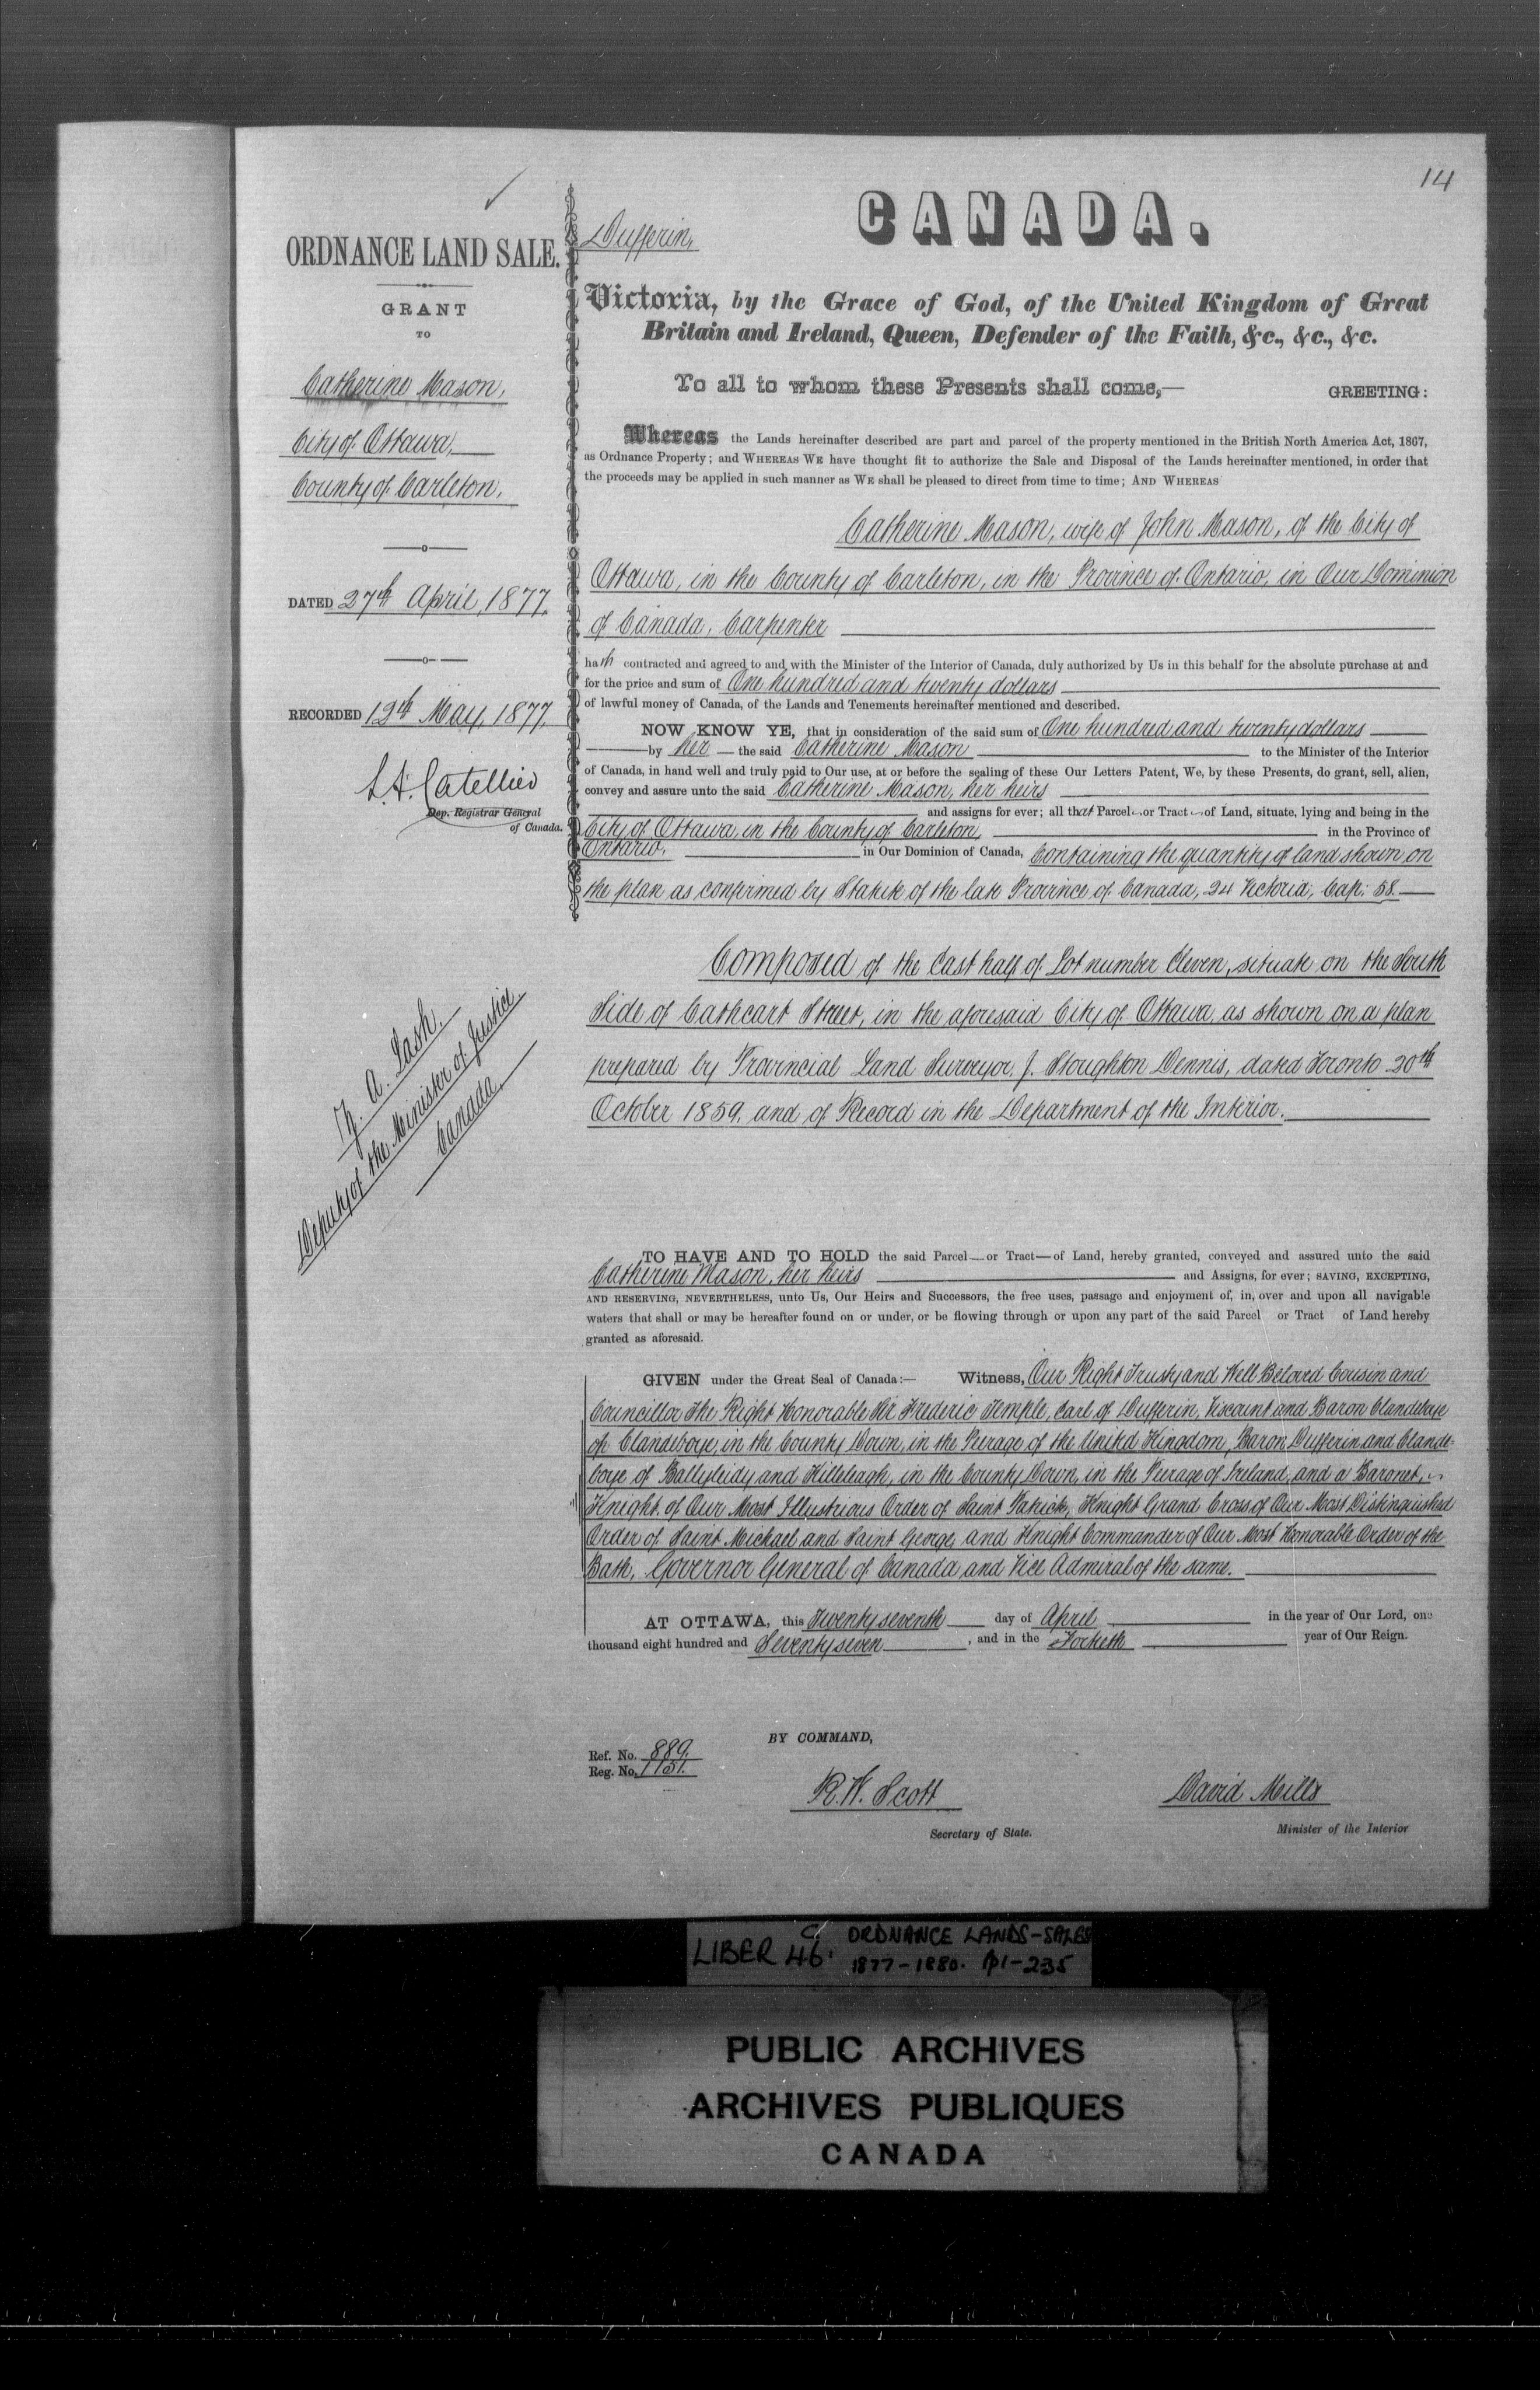 14
ORDNANCE LAND SALE.
GRANT
TO
Catherine Mason,
City of Ottawa,
County of Carleton.
DATED 27th April, 1877.
RECORDED 12th May, 1877.
L. A. Catellier
Dep. Registrar General
of Canada.
Z. A. Lash.
Deputy of the Minister of Justice
Canada
CANADA.
Dufferin,
Victoria, by the Grace of God, of the United Kingdom of Great
Britain and Ireland, Queen, Defender of the Faith, &c., &c., &c.
To all to whom these Presents shall come,— GREETING:
Whereas the Lands hereinafter described are part and parcel of the property mentioned in the British North America Act, 1867,
as Ordnance Property; and WHEREAS WE have thought fit to authorize the Sale and Disposal of the Lands hereinafter mentioned, in order that
the proceeds may be applied in such manner as WE shall be pleased to direct from time to time; AND WHEREAS
Catherine Mason, wife of John Mason, of the City of
Ottawa, in the County of Carleton, in the Province of Ontario, in Our Dominion
of Canada, Carpenter
hath contracted and agreed to and with the Minister of the Interior of Canada, duly authorized by Us in this behalf for the absolute purchase at and
for the price and sum of One hundred and twenty dollars
of lawful money of Canada, of the Lands and Tenements hereinafter mentioned and described.
NOW KNOW YE, that in consideration of the said sum of One hundred and twenty dollars
by her the said Catherine Mason to the Minister of the Interior
of Canada, in hand well and truly paid to Our use, at or before the sealing of these Our Letters Patent, We, by these Presents, do grant, sell, alien,
convey and assure unto the said Catherine Mason, her heirs
and assigns for ever; all that Parcel or Tract of Land, situate, lying and being in the
City of Ottawa in the County of Carleton, in the Province of
Ontario, in Our Dominion of Canada, Containing the quantity of land shown on
the plan as confirmed by Statute of the late Province of Canada, 24 Victoria, Cap: 58.
Composed of the East half of Lot number Eleven, situate on the South
Side of Cathcart Street, in the aforesaid City of Ottawa, as shown on a plan
prepared by Provincial Land Surveyor, J. Stoughton Dennis, dated Toronto 20th
October 1859, and of Record in the Department of the Interior.
TO HAVE AND TO HOLD the said Parcel—or Tract—of Land, hereby granted, conveyed and assured unto the said
Catherine Mason, her heirs and Assigns, for ever; SAVING, EXCEPTING,
AND RESERVING, NEVERTHELESS, unto Us, Our Heirs and Successors, the free uses, passage and enjoyment of, in, over and upon all navigable
waters that shall or may be hereafter found on or under, or be flowing through or upon any part of the said Parcel or Tract of Land hereby
granted as aforesaid.
GIVEN under the Great Seal of Canada:— Witness, Our Right Trusty and Well Beloved Cousin and
Councillor The Right Honorable Sir Frederic Temple, Earl of Dufferin, Viscount and Baron Clandeboye
of Clandeboye, in the County Down, in the Peerage of the United Kingdom, Baron Dufferin and Clande-
boye of Ballyleidy and Killeleagh, in the County Down, in the Peerage of Ireland, and a Baronet,
Knight of Our Most Illustrious Order of Saint Patrick, Knight Grand Cross of Our Most Distinguished
Order of Saint Michael and Saint George, and Knight Commander of Our Most Honorable Order of the
Bath, Governor General of Canada, and Vice Admiral of the same.
AT OTTAWA, this Twenty seventh day of April in the year of Our Lord, one
thousand eight hundred and Seventy seven, and in the Fortieth year of Our Reign.
BY COMMAND,
Ref. No. 889.
Reg. No. 1151.
R. W. Scott
Secretary of State.
David Mills
Minister of the Interior
LIBER 46. C. ORDNANCE LANDS-SALES
1877-1880. p1-235
PUBLIC ARCHIVES
ARCHIVES PUBLIQUES
CANADA